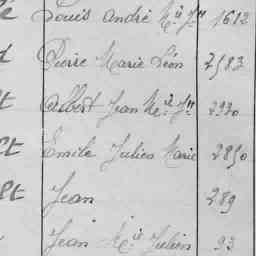 Louis André Mie Jh 1612
Pierre Marie Léon 2583
t Albert Jean Mie Jh 2930
Pt Emile Julien Marie 2850
Pt Jean 289
t Jean Mie Julien 93